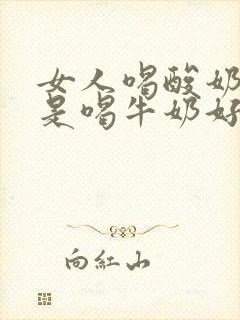 女人喝酸奶
是喝牛奶好
向紅山